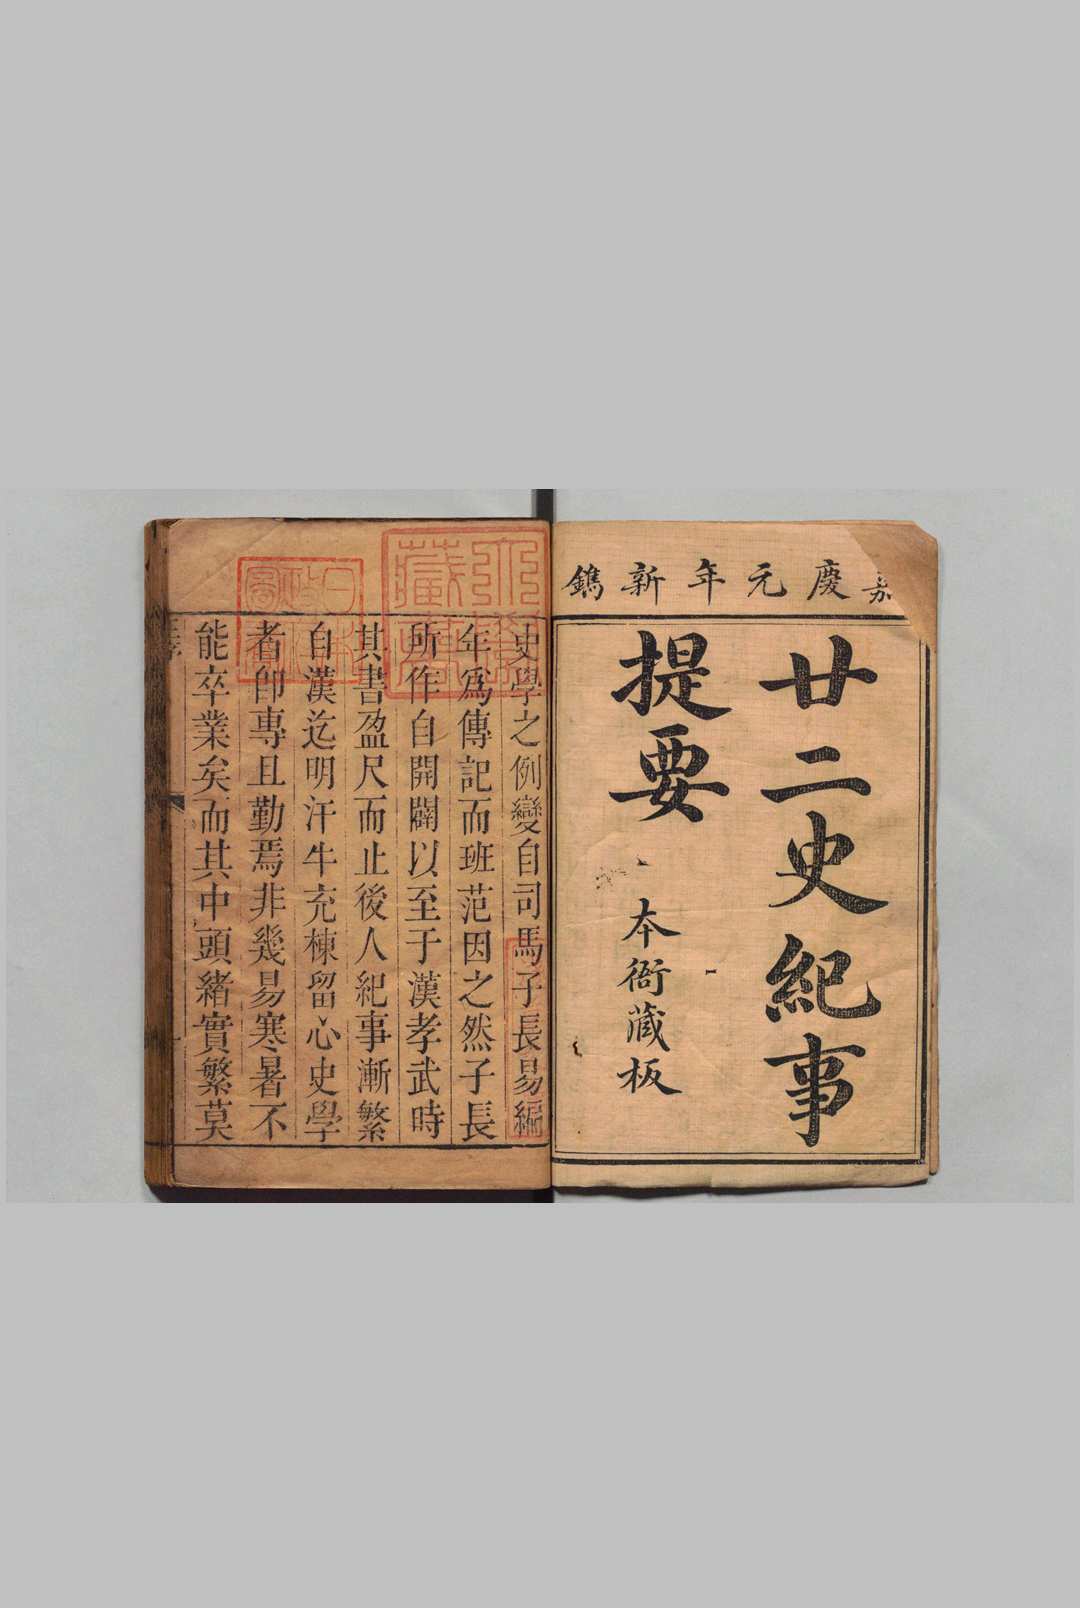 嘉慶元年新鐫
廿二史紀事
提要
本衙藏板
史學之例變自司馬子長易編
年為傳記而班范因之然子長
所作自開闢以至于漢孝武時
其書盈尺而止後人紀事漸繁
自漢迄明汗牛充棟留心史學
者卽專且勤焉非幾易寒暑不
能卒業矣而其中頭緒實繁莫